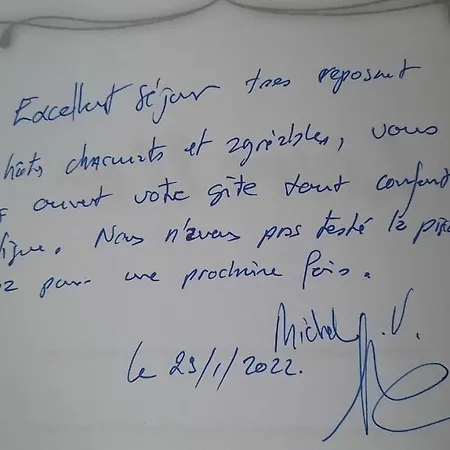 Excellent séjour très reposant
hôtes charmants et agréables, vous
ouvert votre gîte tout confort
Nous n'avons pas testé la
pour une prochaine fois.
Michel V.
le 29/1/2022.